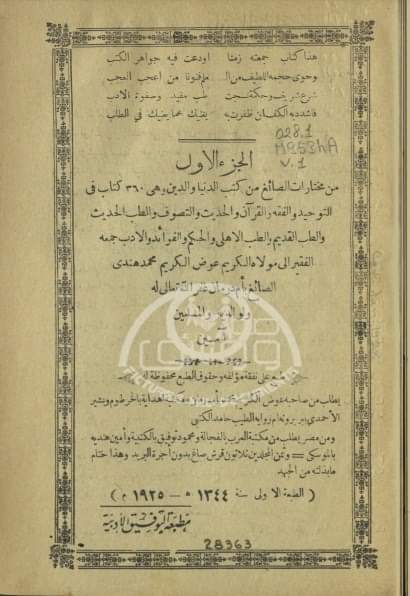 هذا كتاب جمعته زمنا اودعت فيه جواهر الكتب
وحوى حجمه اللطيف من ال مؤلفونا من اعجب العجب
شرع شريف وحكمة طب مفيد وصفوة الادب
فاشدد به الكف ان ظفرت به يغنيك عما يغنيك في الطلب
028.1
M953hA
V.1
الجزء الاول
من مختارات الصائغ من كتب الدنيا والدين وهي ٣٦٠ كتاب فى
التوحيد والفقه والقرآن والحديث والتصوف والطب الحديث
والطب القديم والطب الاهلى والحكم والفوائد والادب جمعه
الفقير الى مولاه الكريم عوض الكريم محمد هندى
الصائغ بأم درمان غفر الله تعالى له
ولوالديه والمسلمين
آمين
طبع على نفقة مؤلفه وحقوق الطبع محفوظة له
يطلب من صاحبه عوض الكريم بأم درمان ومن مكتبة الهداية بالخرطوم وبشير
الأحمدى ببربر وبعموم رواية الطيب حامد الكتبى
ومن مصر يطلب من مكتبة العرب بالفجالة ومحمود توفيق بالكتبية وأمين هنديه
بالموسكى = وثمن المجلدين ثلاثون قرش صاغ بدون أجرة البريد وهذا ختام
ما بذلته من الجهد
( الطبعة الاولى سنة ١٣٤٤ ه — ١٩٢٥ م )
مطبعة التوفيق الأدبية
28363